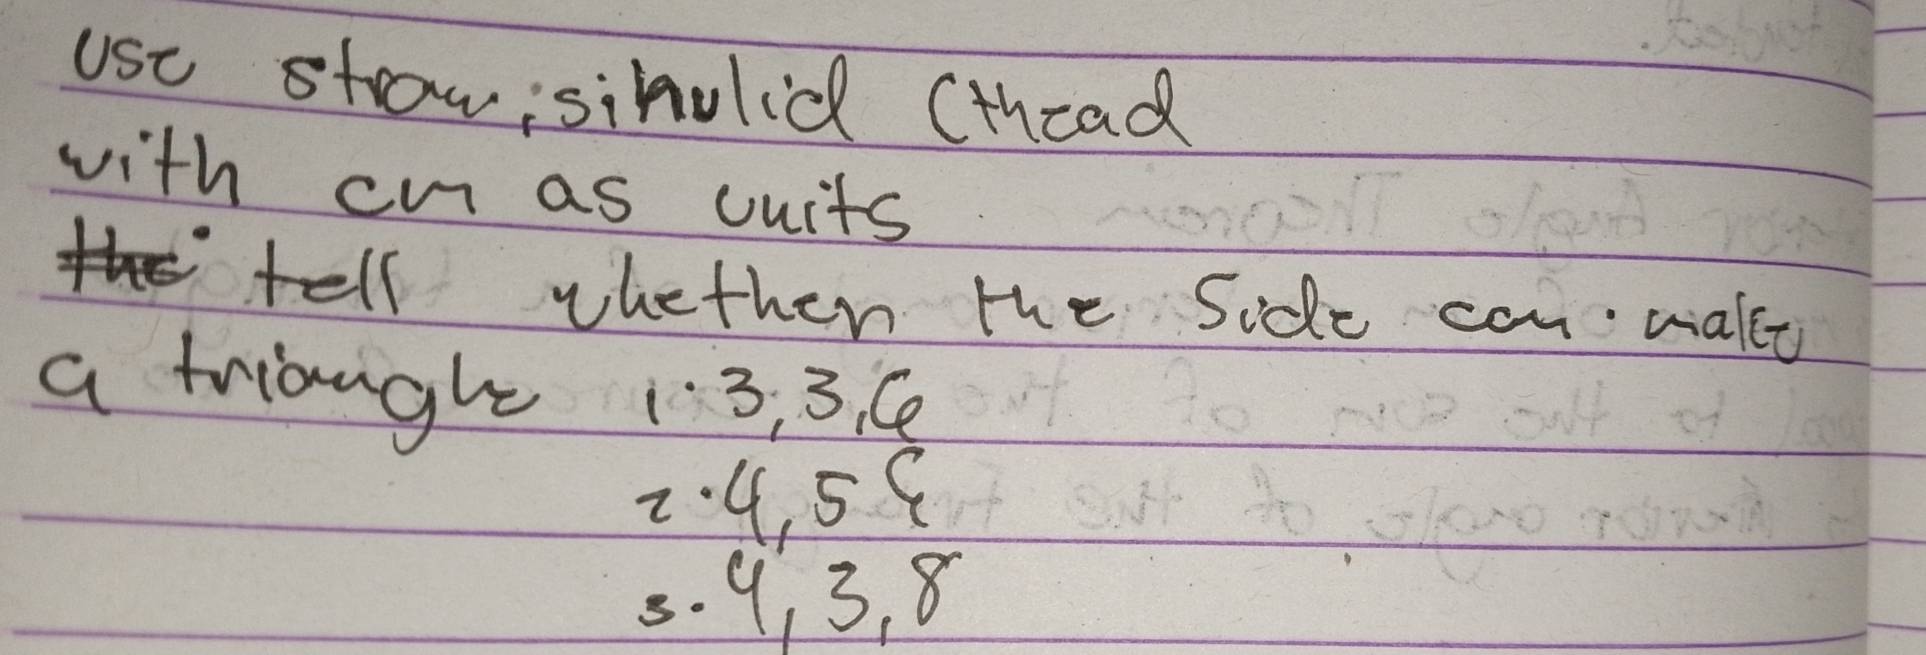 use straw, sinulid (thread
with cm as units
the tell whether the Side can make
a triangle 1. 3, 3, 6
2. 4, 5
3. 4, 3, 8